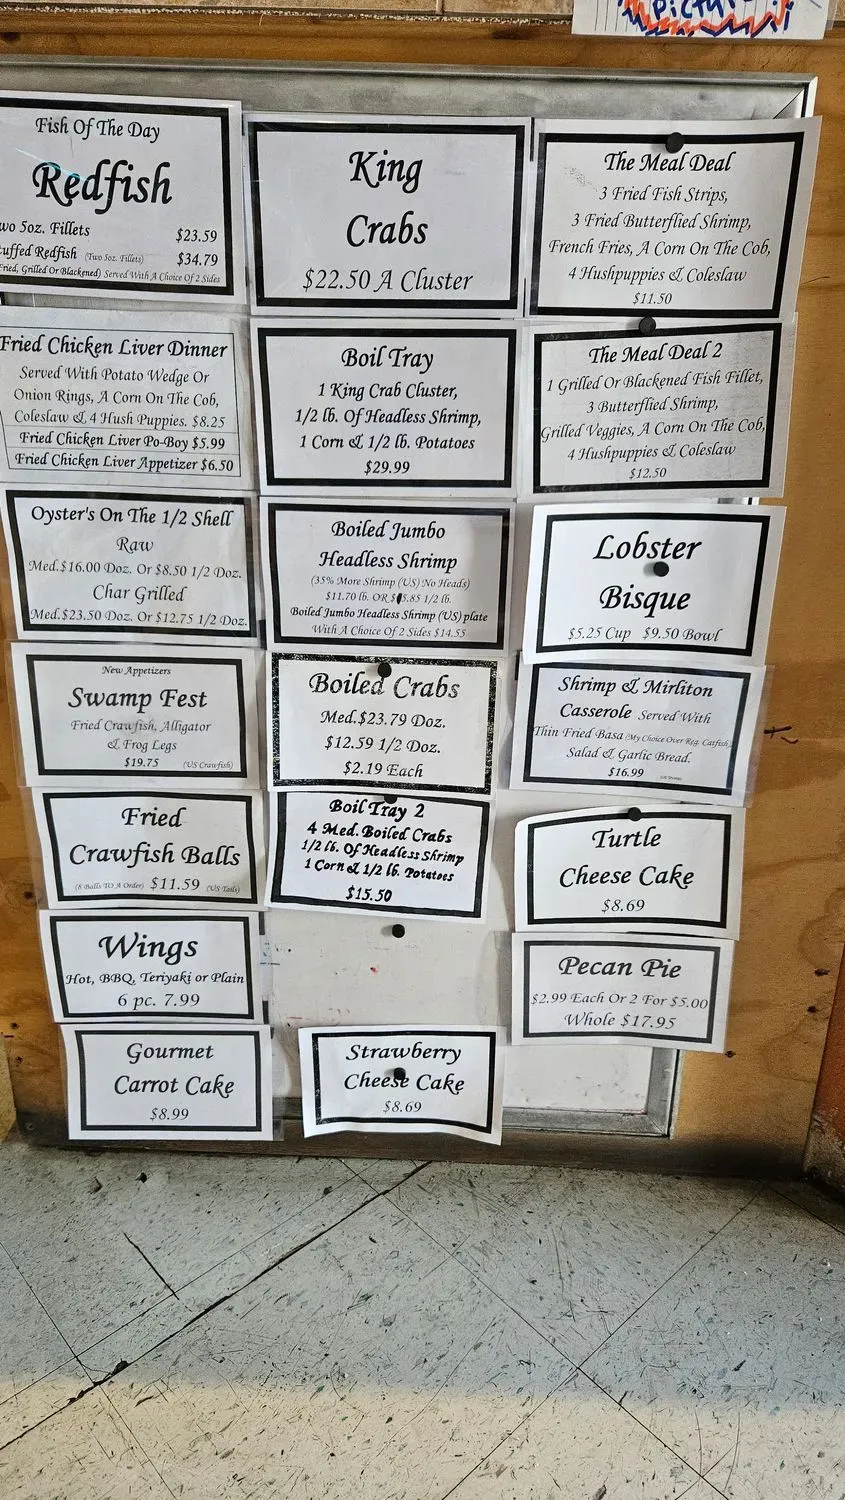 Fish Of The Day
Redfish
wo 5oz. Fillets $23.59
tuffed Redfish (Two 5oz. Fillets) $34.79
Fried, Grilled Or Blackened) Served With A Choice Of 2 Sides
Fried Chicken Liver Dinner
Served With Potato Wedge Or
Onion Rings, A Corn On The Cob,
Coleslaw & 4 Hush Puppies. $8.25
Fried Chicken Liver Po-Boy $5.99
Fried Chicken Liver Appetizer $6.50
Oyster's On The 1/2 Shell
Raw
Med.$16.00 Doz. Or $8.50 1/2 Doz.
Char Grilled
Med.$23.50 Doz. Or $12.75 1/2 Doz.
New Appetizers
Swamp Fest
Fried Crawfish, Alligator
& Frog Legs
$19.75 (US Crawfish)
Fried
Crawfish Balls
(8 Balls TO A Order) $11.59 (US Tails)
Wings
Hot, BBQ, Teriyaki or Plain
6 pc. 7.99
Gourmet
Carrot Cake
$8.99
King
Crabs
$22.50 A Cluster
Boil Tray
1 King Crab Cluster,
1/2 lb. Of Headless Shrimp,
1 Corn & 1/2 lb. Potatoes
$29.99
Boiled Jumbo
Headless Shrimp
(35% More Shrimp (US) No Heads)
$11.70 lb. OR $5.85 1/2 lb.
Boiled Jumbo Headless Shrimp (US) plate
With A Choice Of 2 Sides $14.55
Boiled Crabs
Med.$23.79 Doz.
$12.59 1/2 Doz.
$2.19 Each
Boil Tray 2
4 Med. Boiled Crabs
1/2 lb. Of Headless Shrimp
1 Corn & 1/2 lb. Potatoes
$15.50
Strawberry
Cheese Cake
$8.69
The Meal Deal
3 Fried Fish Strips,
3 Fried Butterflied Shrimp,
French Fries, A Corn On The Cob,
4 Hushpuppies & Coleslaw
$11.50
The Meal Deal 2
1 Grilled Or Blackened Fish Fillet,
3 Butterflied Shrimp,
Grilled Veggies, A Corn On The Cob,
4 Hushpuppies & Coleslaw
$12.50
Lobster
Bisque
$5.25 Cup $9.50 Bowl
Shrimp & Mirliton
Casserole Served With
Thin Fried Basa (My Choice Over Reg. Catfish)
Salad & Garlic Bread.
$16.99
Turtle
Cheese Cake
$8.69
Pecan Pie
$2.99 Each Or 2 For $5.00
Whole $17.95